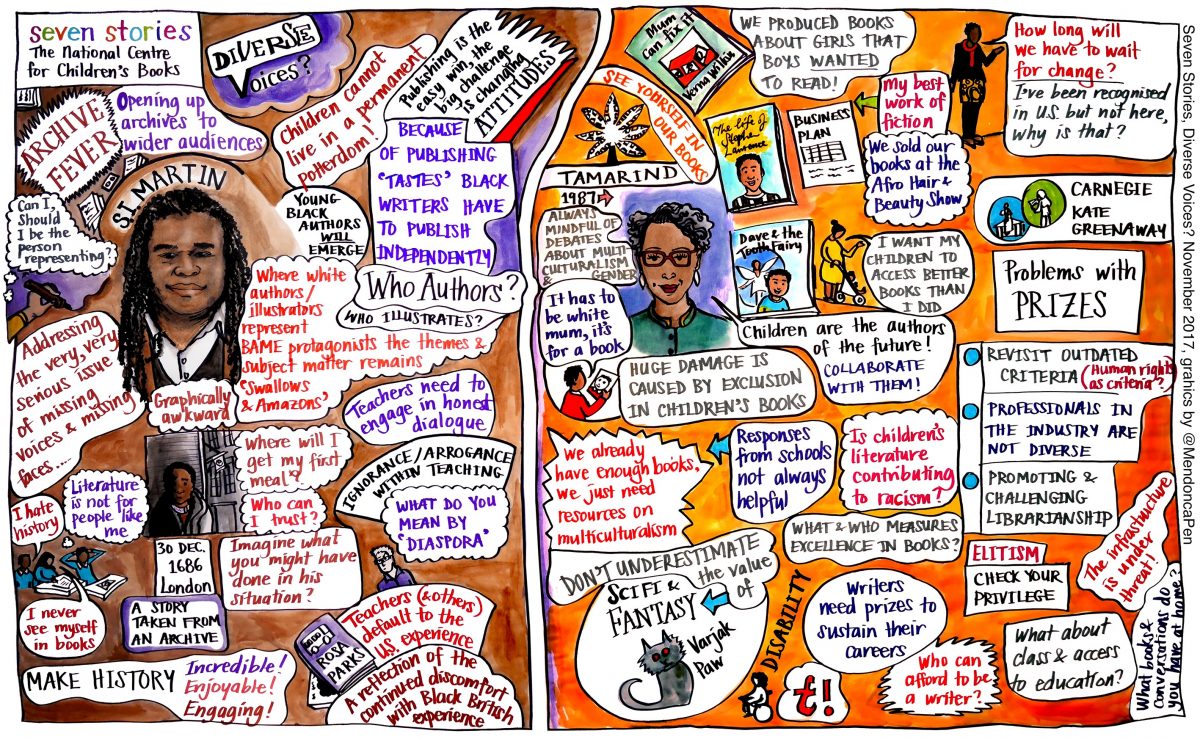 seven stories
The National Centre
for Children's Books
DIVERSE
Voices?
ARCHIVE
FEVER
Opening up
archives to
wider audiences
Children cannot
live in a permanent
Potterdom!
Publishing is the
easy win, the
big challenge
is changing
ATTITUDES
SJ MARTIN
Can I,
Should
I be the
person
representing?
YOUNG
BLACK
AUTHORS
WILL
EMERGE
BECAUSE
OF PUBLISHING
'TASTES' BLACK
WRITERS HAVE
TO PUBLISH
INDEPENDENTLY
Where white
authors/
illustrators
represent
BAME protagonists the themes &
subject matter remains
'Swallows
& Amazons'
Who Authors?
WHO ILLUSTRATES?
Addressing
the very, very
serious issue
of missing
voices & missing
faces...
Graphically
awkward
Teachers need to
engage in honest
dialogue
Where will I
get my first
meal?
Who can
I trust?
IGNORANCE/ARROGANCE
WITHIN TEACHING
WHAT DO YOU
MEAN BY
'DIASPORA'
I hate
history
Literature
is not for
people like
me
30 DEC.
1686
London
Imagine what
you might have
done in his
situation?
I never
see myself
in books
A STORY
TAKEN FROM
AN ARCHIVE
ROSA
PARKS
Teachers (& others)
default to the
U.S. experience
A reflection of the
continued discomfort
with Black British
experience
MAKE HISTORY
Incredible!
Enjoyable!
Engaging!
Mum
can fix it
Verna Wilkins
WE PRODUCED BOOKS
ABOUT GIRLS THAT
BOYS WANTED
TO READ!
SEE YOURSELF IN
OUR BOOKS
TAMARIND
1987
The life of
Stephen
Lawrence
BUSINESS
PLAN
my best
work of
fiction
We sold our
books at the
Afro Hair &
Beauty Show
How long will
we have to wait
for change?
I've been recognised
in U.S. but not here,
why is that?
ALWAYS
MINDFUL OF
DEBATES
ABOUT MULTI-
CULTURALISM
& GENDER
Dave & the
Tooth Fairy
I WANT MY
CHILDREN TO
ACCESS BETTER
BOOKS THAN
I DID
CARNEGIE
KATE
GREENAWAY
Problems with
PRIZES
It has to
be white
mum, it's
for a book
Children are the authors
of the future!
COLLABORATE
WITH THEM!
HUGE DAMAGE IS
CAUSED BY EXCLUSION
IN CHILDREN'S BOOKS
REVISIT OUTDATED
CRITERIA (Human rights
as criteria?)
PROFESSIONALS IN
THE INDUSTRY ARE
NOT DIVERSE
PROMOTING &
CHALLENGING
LIBRARIANSHIP
We already
have enough books,
we just need
resources on
multiculturalism
Responses
from schools
not always
helpful
Is children's
literature
contributing
to racism?
WHAT & WHO MEASURES
EXCELLENCE IN BOOKS?
DON'T UNDERESTIMATE
the value
of
SCIFI &
FANTASY
Varjak
Paw
DISABILITY
t!
Writers
need prizes to
sustain their
careers
Who can
afford to be
a writer?
ELITISM
CHECK YOUR
PRIVILEGE
The infrastructure
is under
threat!
What about
class & access
to education?
What books &
conversations do
you have at home?
Seven Stories, Diverse Voices? November 2017, grahics by @MendoncaPen